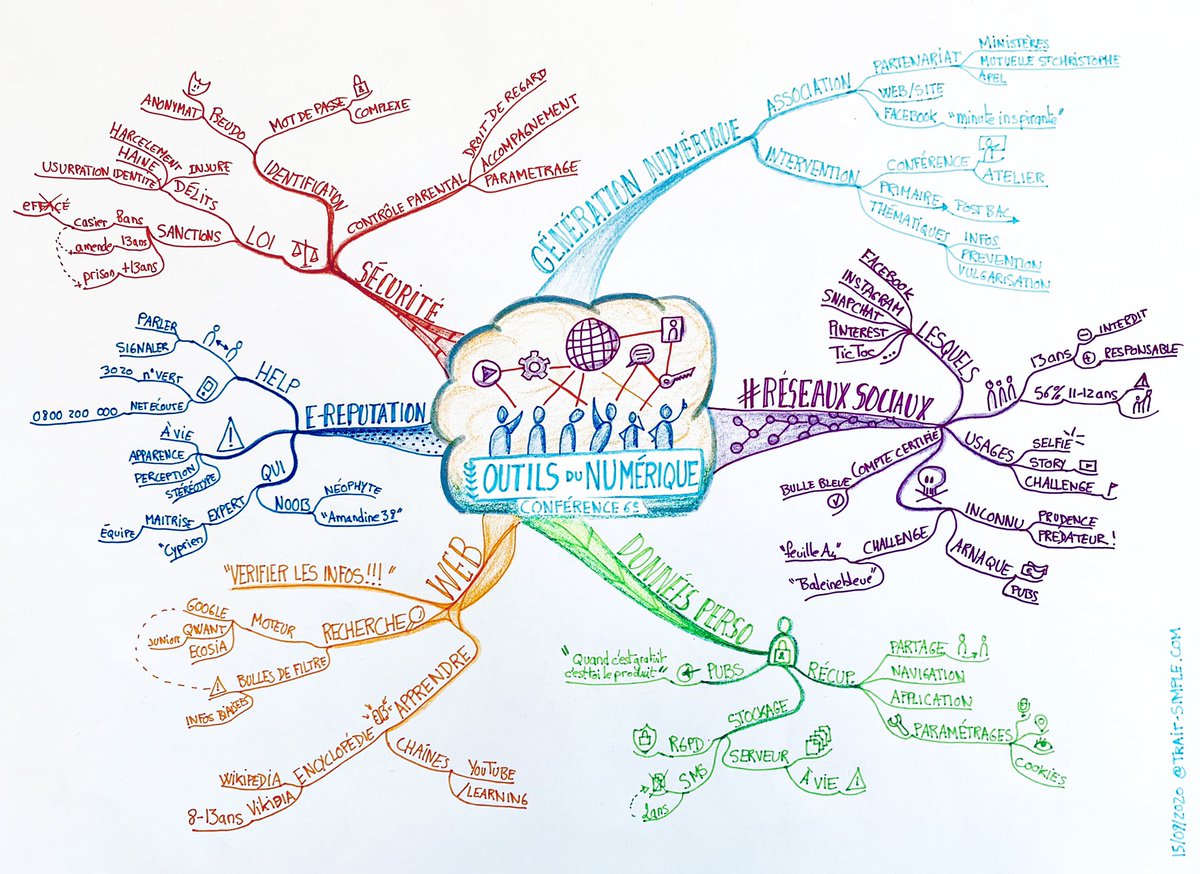 OUTILS DU NUMÉRIQUE
CONFÉRENCE 6e
GÉNÉRATION NUMÉRIQUE
ASSOCIATION
PARTENARIAT
MINISTÈRES
MUTUELLE ST CHRISTOPHE
APEL
WEB/SITE
FACEBOOK
"minute inspirante"
INTERVENTION
CONFÉRENCE
ATELIER
PRIMAIRE
POST BAC
THÉMATIQUES
INFOS
PREVENTION
VULGARISATION
#RÉSEAUX SOCIAUX
LESQUELS
FACEBOOK
INSTAGRAM
SNAPCHAT
PINTEREST
TicToc
...
13 ans
INTERDIT
RESPONSABLE
56% 11-12 ans
USAGES
SELFIE
STORY
CHALLENGE
COMPTE CERTIFIÉ
BULLE BLEUE
INCONNU
PRUDENCE
PRÉDATEUR!
ARNAQUE
PUBS
CHALLENGE
"feuille A4"
"Baleine bleue"
DONNÉES PERSO
RÉCUP.
PARTAGE
NAVIGATION
APPLICATION
PARAMÉTRAGES
COOKIES
PUBS
"Quand c'est gratuit
c'est toi le produit"
STOCKAGE
RGPD
SMS
2ans
SERVEUR
À VIE
WEB
"VERIFIER LES INFOS!!!"
RECHERCHE
MOTEUR
GOOGLE
QWANT
junior
ECOSIA
BULLES DE FILTRE
INFOS BIAISÉES
APPRENDRE
ENCYCLOPÉDIE
WIKIPEDIA
VIKIDIA
8-13ans
CHAÎNES
YOUTUBE
LEARNING
E-REPUTATION
HELP
PARLER
SIGNALER
n° VERT
3020
NET ECOUTE
0800 200 000
À VIE
APPARENCE
PERCEPTION
STÉRÉOTYPE
QUI
EXPERT
MAITRISE
ÉQUIPE
"Cyprien"
NOOB
NÉOPHYTE
"Amandine 38"
SÉCURITÉ
LOI
DÉLITS
INSURE
HARCELEMENT
HAINE
USURPATION IDENTITÉ
SANCTIONS
8ans
casier
effacé
13ans
amende
+13ans
prison
IDENTIFICATION
PSEUDO
ANONYMAT
MOT DE PASSE
COMPLEXE
CONTRÔLE PARENTAL
DROIT DE REGARD
ACCOMPAGNEMENT
PARAMETRAGE
15/09/2020 @TRAIT-SIMPLE.COM